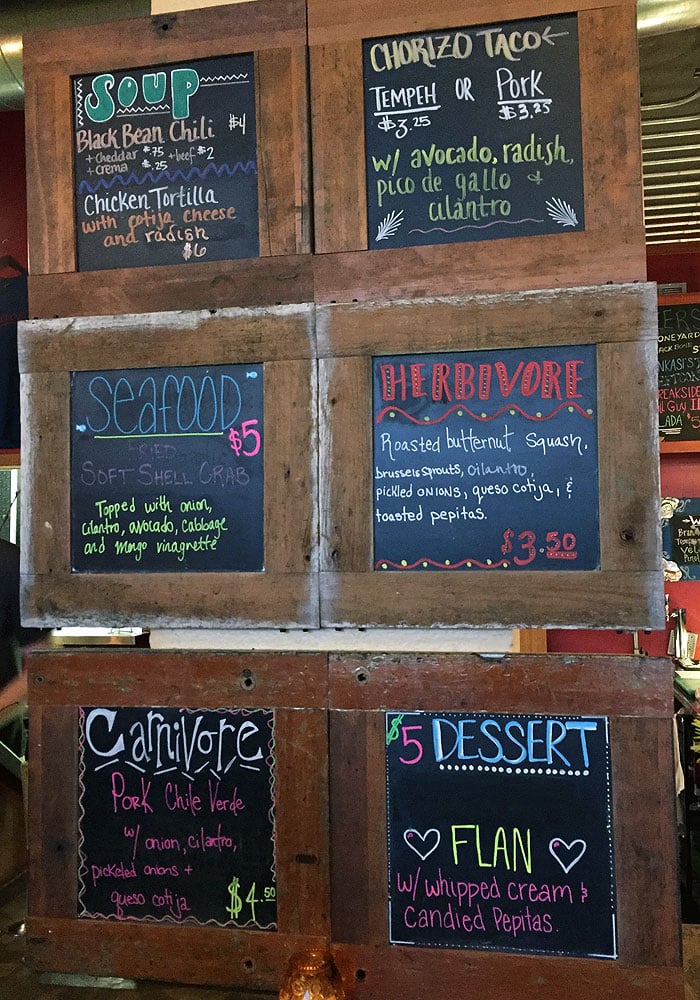 SOUP
Black Bean Chili $4
+cheddar $.75 +beef $2
+crema $.25
Chicken Tortilla
with cotija cheese
and radish
$6
CHORIZO TACO
TEMPEH OR Pork
$3.25 $3.25
w/ avocado, radish,
pico de gallo &
cilantro
Seafood
$5
FRIED
SOFT SHELL CRAB
Topped with onion,
cilantro, avocado, cabbage
and mango vinagrette
HERBIVORE
Roasted butternut Squash,
brussels sprouts, cilantro,
pickled onions, queso cotija, &
toasted pepitas.
$3.50
Carnivore
Pork Chile Verde
w/ onion, cilantro,
pickeled onions +
queso cotija $4.50
$5 DESSERT
FLAN
w/ whipped cream &
Candied Pepitas.